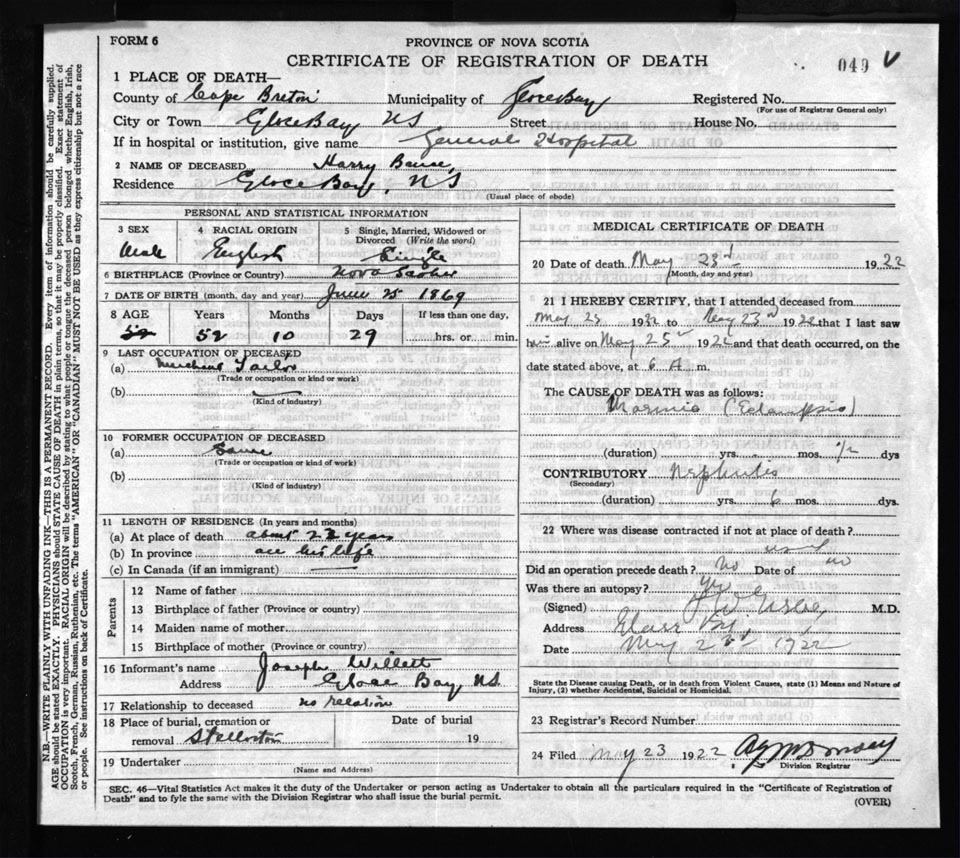 FORM 6
PROVINCE OF NOVA SCOTIA
CERTIFICATE OF REGISTRATION OF DEATH
049
1 PLACE OF DEATH—
County of Cape Breton Municipality of Glace Bay Registered No.
(For use of Registrar General only)
City or Town Glace Bay NS Street House No.
If in hospital or institution, give name General Hospital
2 NAME OF DECEASED Harry
Residence Glace Bay, NS
(Usual place of abode)
PERSONAL AND STATISTICAL INFORMATION
3 SEX
Male
4 RACIAL ORIGIN
English
5 Single, Married, Widowed or
Divorced (Write the word)
Single
6 BIRTHPLACE (Province or Country) Nova Scotia
7 DATE OF BIRTH (month, day and year) June 25 1869
8 AGE Years Months Days If less than one day,
52 52 10 29 hrs. or min.
9 LAST OCCUPATION OF DECEASED
(a) Merchant Tailor
(Trade or occupation or kind or work)
(b)
(Kind of industry)
10 FORMER OCCUPATION OF DECEASED
(a) Same
(Trade or occupation or kind or work)
(b)
(Kind of industry)
11 LENGTH OF RESIDENCE (In years and months)
(a) At place of death about years
(b) In province all his life
(c) In Canada (if an immigrant)
Parents
12 Name of father
13 Birthplace of father (Province or country)
14 Maiden name of mother
15 Birthplace of mother (Province or country)
16 Informant's name Joseph Willett
Address Glace Bay NS.
17 Relationship to deceased no relation
18 Place of burial, cremation or Date of burial
removal Stellarton 19
19 Undertaker
(Name and Address)
MEDICAL CERTIFICATE OF DEATH
20 Date of death May 23rd 1922
(Month, day and year)
21 I HEREBY CERTIFY, that I attended deceased from
May 23 1922 to May 23rd 1922 that I last saw
him alive on May 23rd 1922 and that death occurred, on the
date stated above, at 6 A m.
The CAUSE OF DEATH was as follows:
(Eclampsia)
(duration) yrs. mos. 1/2 dys
CONTRIBUTORY Nephritis
(Secondary)
(duration) yrs. 6 mos. dys.
22 Where was disease contracted if not at place of death?
Did an operation precede death? No Date of no
Was there an autopsy?
(Signed) M.D.
Address
Date May 1922
State the Disease causing Death, or in death from Violent Causes, state (1) Means and Nature of
Injury, (2) whether Accidental, Suicidal or Homicidal.
23 Registrar's Record Number
24 Filed May 23 1922
Division Registrar
SEC. 46—Vital Statistics Act makes it the duty of the Undertaker or person acting as Undertaker to obtain all the particulars required in the "Certificate of Registration of
Death" and to fyle the same with the Division Registrar who shall issue the burial permit.
(OVER)
N.B.—WRITE PLAINLY WITH UNFADING INK—THIS IS A PERMANENT RECORD. Every item of information should be carefully supplied.
AGE should be stated EXACTLY. PHYSICIANS should STATE CAUSE OF DEATH in plain terms, so that it may be properly classified. Exact statement of
OCCUPATION is very important. RACIAL ORIGIN will be described by stating to what people or tongue the deceased person belonged whether English, Irish,
Scotch, French, German, Russian, Ruthenian, etc. The terms "AMERICAN" OR "CANADIAN" MUST NOT BE USED as they express citizenship but not a race
or people. See instructions on back of Certificate.